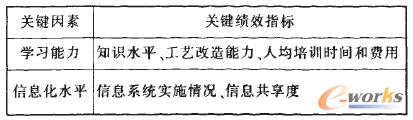 关键因素 关键绩效指标
学习能力 知识水平、工艺改造能力、人均培训时间和费用
信息化水平 信息系统实施情况、信息共享度
e-works